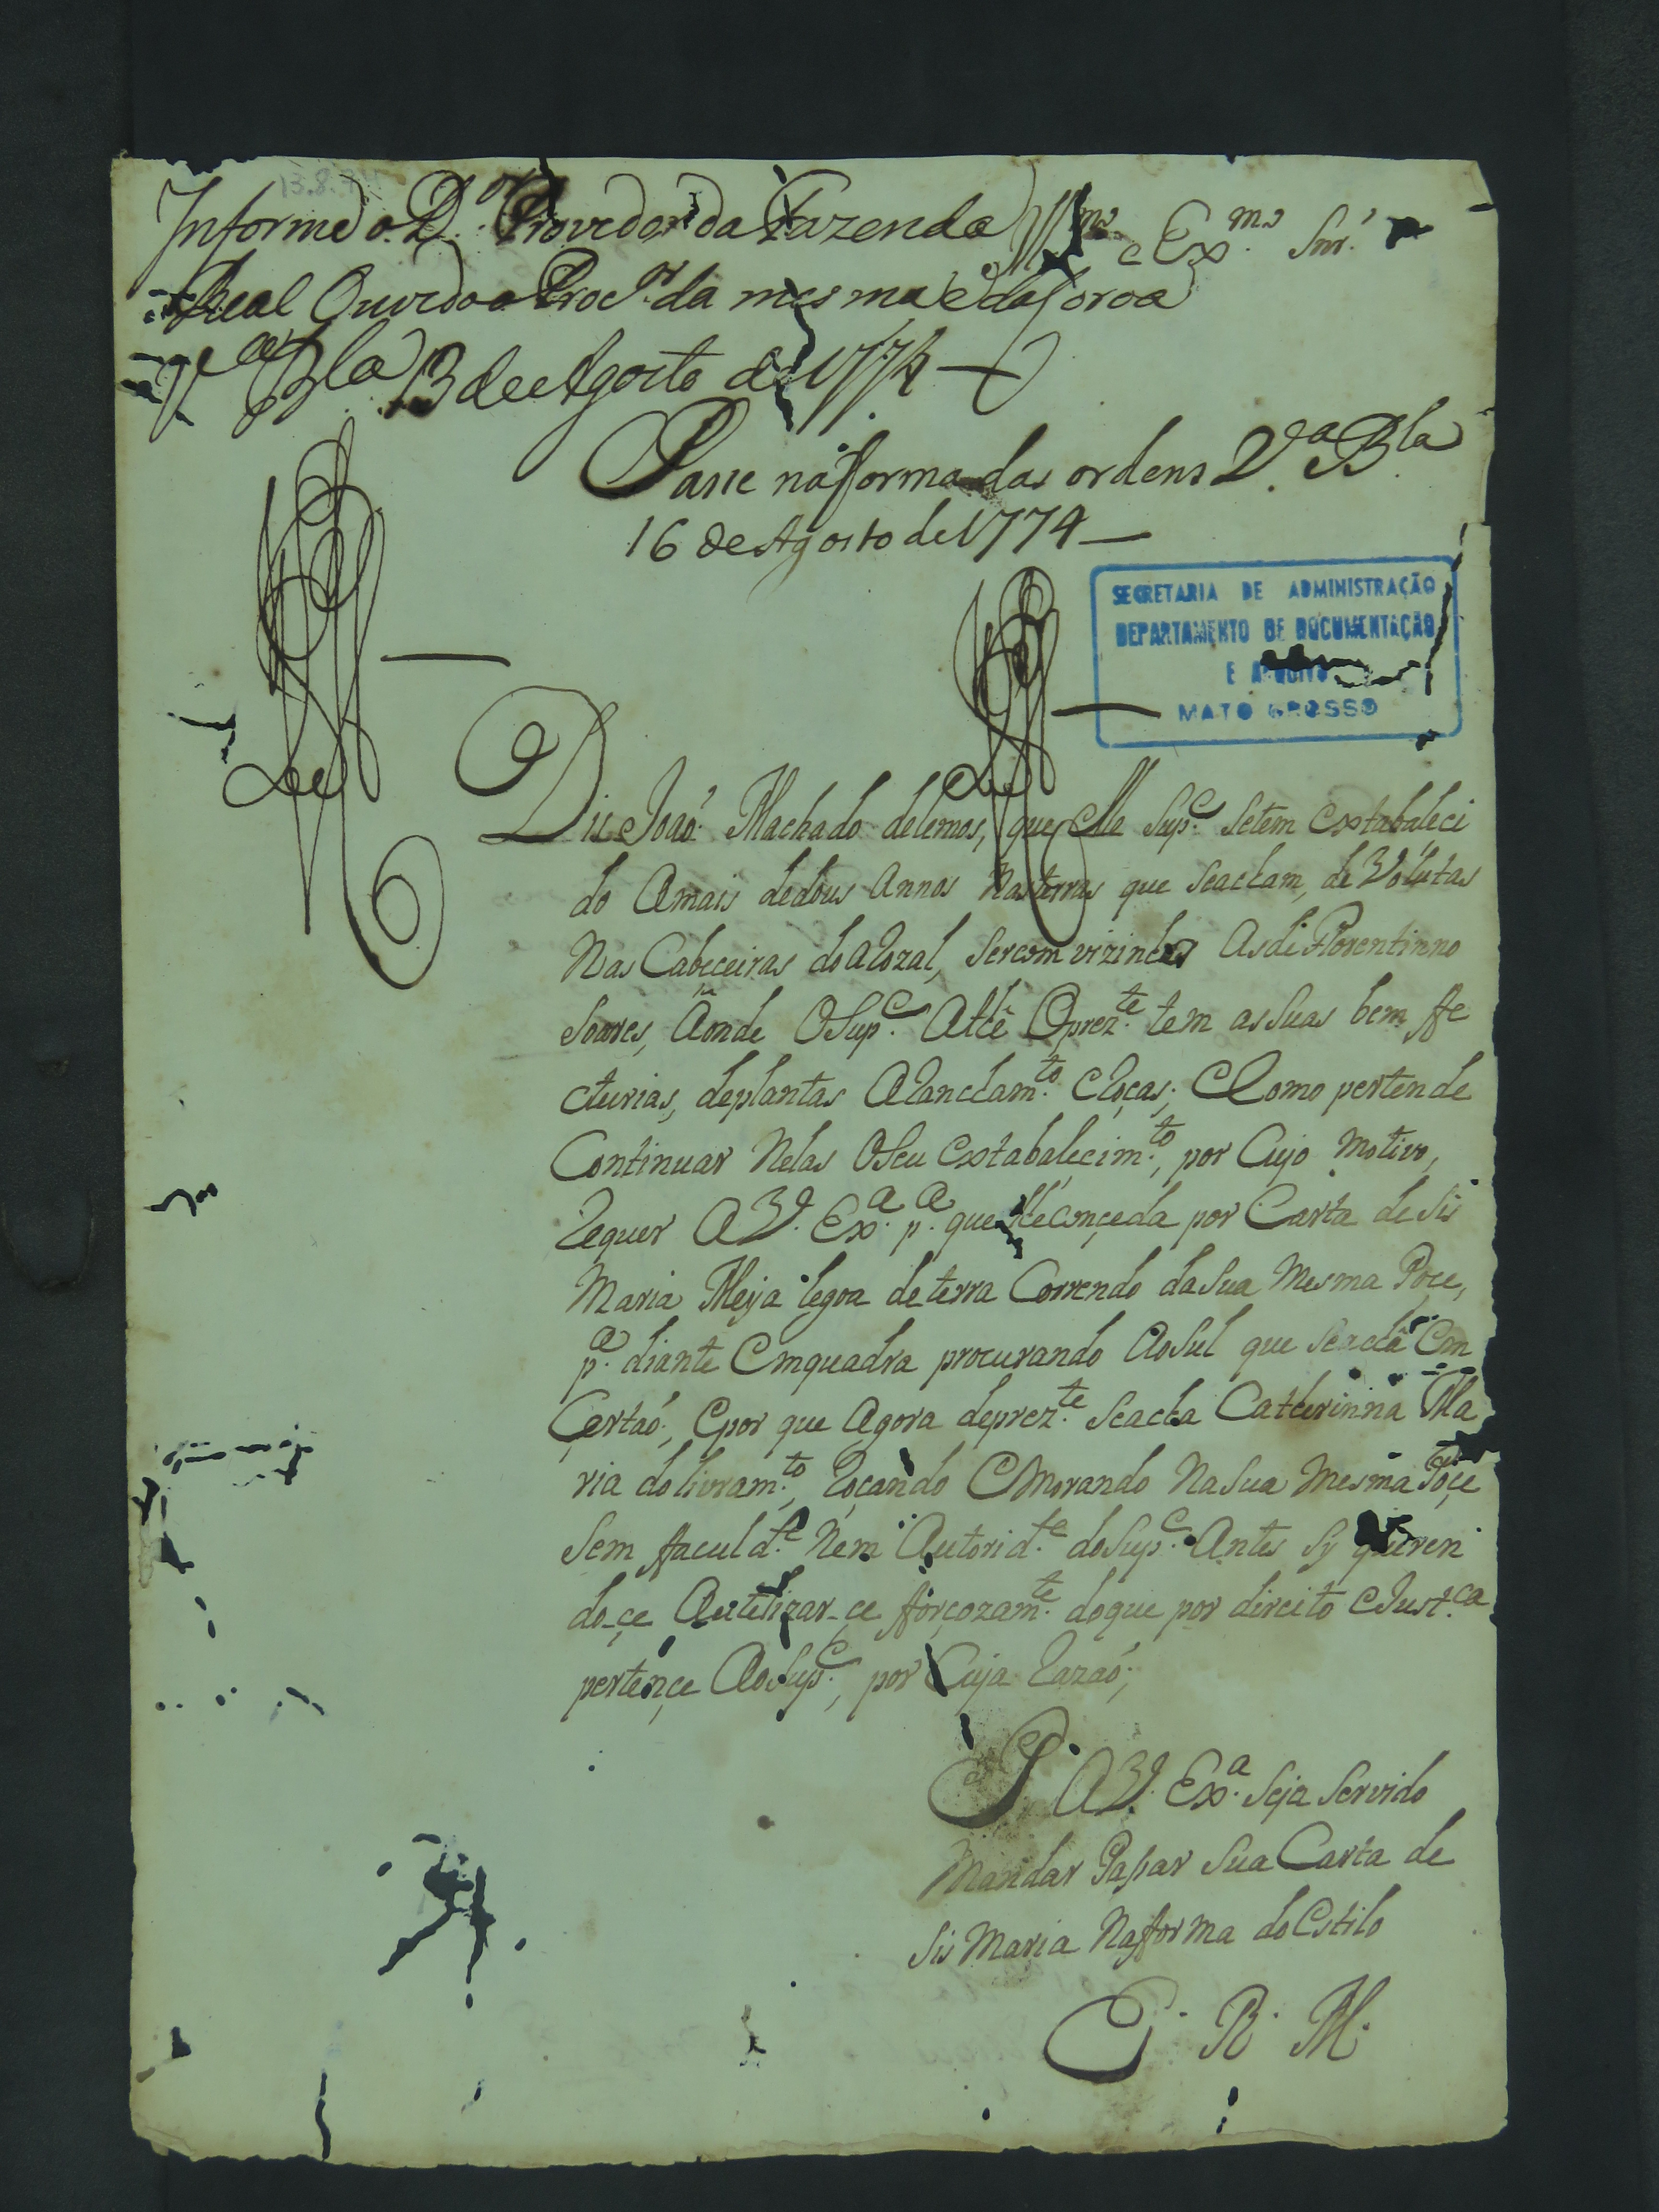 13.8.74
Informe o D.or Provedor da Fazenda
Real Ouvido o Proc.or da mesma e da Coroa
V.a Bla 13 de Agosto de 1774
Ill.mo e Ex.mo Snr.
Passe na forma das ordens V.a Bla
16 de Agosto de 1774
SECRETARIA DE ADMINISTRAÇÃO
DEPARTAMENTO DE DOCUMENTAÇÃO
E ARQUIVO
MATO GROSSO
Dis João Machado delemos, que elle Sup.e setem Extabaleci
do Amais dedous Annos Nasterras que seacham, de Volutas
Nas Cabeceiras do , sercom vizinhas Asde Florentinno
Soares, Aonde OSup.e Athê Oprez.te tem assuas bem ffe
cturias, deplantas Arancham.to eRoças; eComo pertende
Continuar Nelas Oseu Extabalecim.to, por Cujo Motivo,
Requer AV. Ex.a p.a que lheconçeda por Carta de Sis
Maria Meya legoa de terra Correndo dasua Mesma Poce,
p.a diante Emquadra procurando Aosul que seachâ Em
Certaõ; Epor que Agora deprez.te seacha Catherinna Ma
ria dolivram.to, Roçando EMorando Nasua Mesma Poçe
sem ffaculd.e Nem Autorid.e doSup.e Antes sy queren
do-çe Autelizar-çe fforçozam.te doque por direito eJust.ca
pertençe AoSup.e, por Cuja Razaõ;
P. AV. Ex.a seja servido
Mandar Paſsar sua Carta de
Sis Maria Nafforma do Estilo
E. R. M.